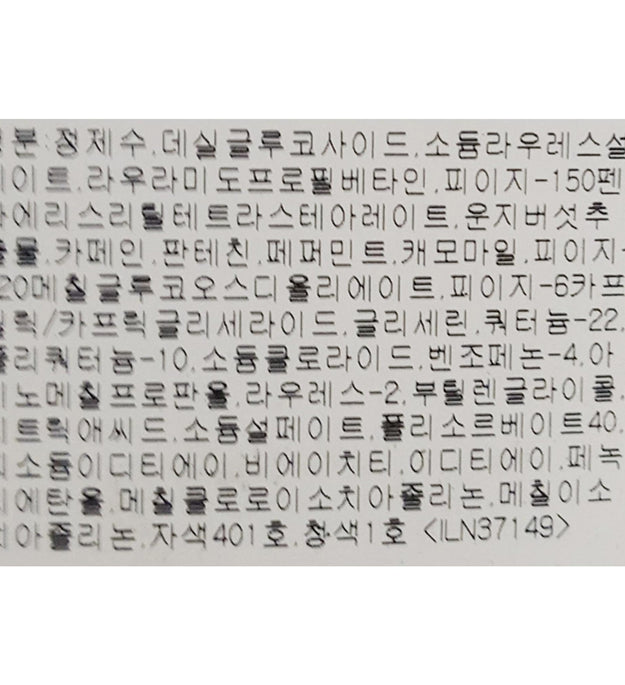 분:정제수,데실글루코사이드,소듐라우레스설
이트,라우라미도프로필베타인,피이지-150펜
에리스리틸테트라스테아레이트,운지버섯추
출물,카페인,판테친,페퍼민트,캐모마일,피이지-
20메칠글루코오스디올리에이트,피이지-6카프
릴릭/카프릭글리세라이드,글리세린,쿼터늄-22,
폴리쿼터늄-10,소듐클로라이드,벤조페논-4,아
미노메칠프로판올,라우레스-2,부틸렌글라이콜,
시트릭애씨드,소듐설페이트,폴리소르베이트40,
소듐이디티에이,비에이치티,이디티에이,페녹
시에탄올,메칠클로로이소치아졸리논,메칠이소
치아졸리논,자색401호,청색1호 <ILN37149>